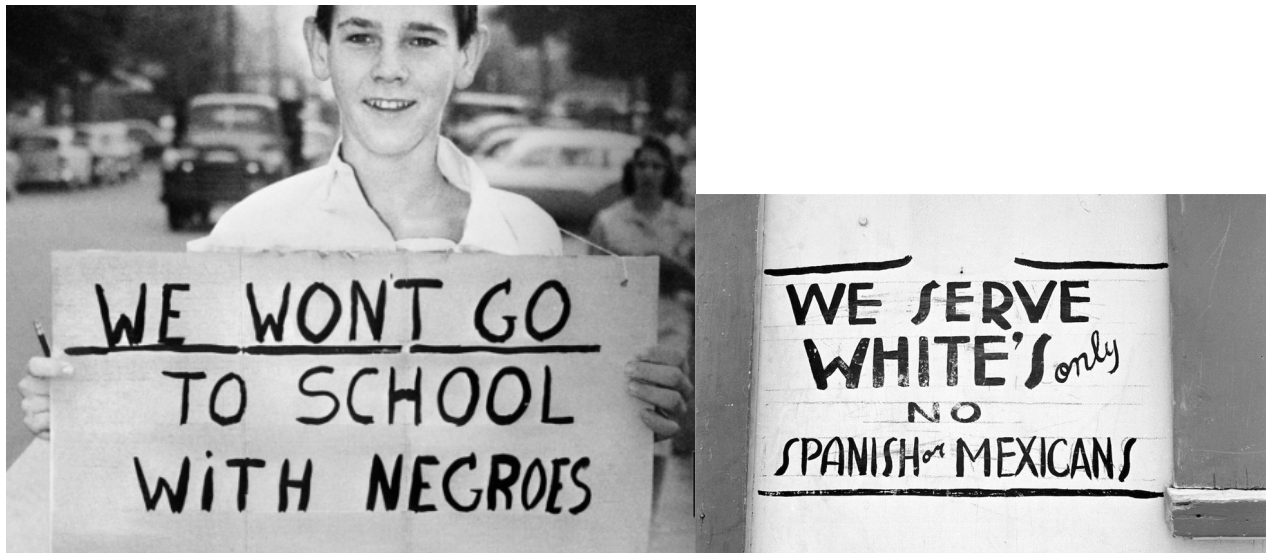 WE WON'T GO
TO SCHOOL
WITH NEGROES
WE SERVE
WHITE'S only
NO
SPANISH or MEXICANS